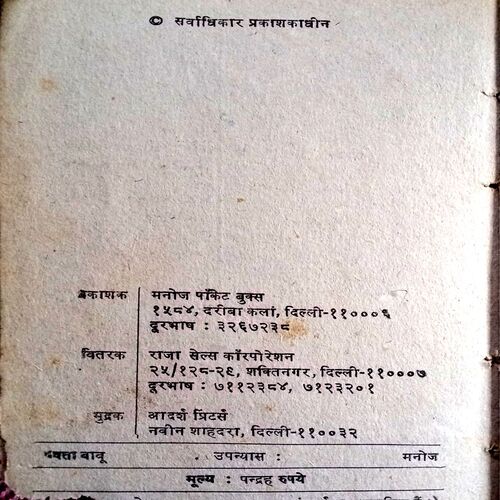 © सर्वाधिकार प्रकाशकाधीन
प्रकाशक मनोज पॉकेट बुक्स
१५८४, दरीबा कलां, दिल्ली-११०००६
दूरभाष : ३२६७२३८
वितरक राजा सेल्स कॉरपोरेशन
२५/१२८-२९, शक्तिनगर, दिल्ली-११०००७
दूरभाष : ७११२३८४, ७१२३२०१
मुद्रक आदर्श प्रिंटर्स
नवीन शाहदरा, दिल्ली-११००३२
बाबू : उपन्यास : मनोज
मूल्य : पन्द्रह रुपये